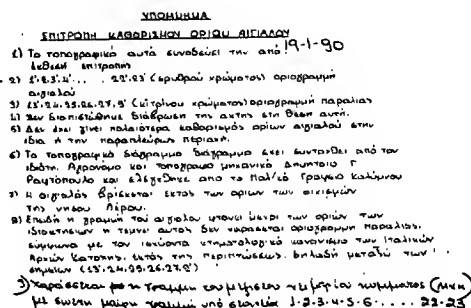 ΥΠΟΜΝΗΜΑ
ΕΠΙΤΡΟΠΗ ΚΑΘΟΡΙΣΜΟΥ ΟΡΙΩΝ ΑΙΓΙΑΛΟΥ
1) Το τοπογραφικό αυτό συνοδεύει την από 19-1-90
έκθεση επιτροπής
2) 1'.2'.3'.4'. . . . 22'.23' (ερυθρού χρώματος) οριογραμμή
αιγιαλού
3) 13'.24.25.26.27.9' (κίτρινου χρώματος) οριογραμμή παραλίας
4) Δεν διαπιστώθηκε διάβρωση της ακτής στη θέση αυτή.
5) Δεν έχει γίνει παλαιότερα καθορισμός ορίων αιγιαλού στην
ίδια ή την παραπλεύρως περιοχή.
6) Το τοπογραφικό διάγραμμα διάγραμμα έχει συνταχθεί από τον
ιδιώτη Αγρονόμο και τοπογράφο μηχανικό Δημήτριο Γ
και ελέγχθηκε από το Πολ/κό Γραφείο Καλύμνου
7) Η αιγιαλός βρίσκεται εκτός των ορίων των οικισμών
της νήσου Λέρου.
8) Επειδή η γραμμή του αιγιαλου φτάνει μέχρι των οριών των
ιδιοκτησιών η τέμνει αυτός δεν χαράσεται οριογραμμή παραλίας,
σύμφωνα με τον ισχύοντα κτηματολογικό κανονισμό των Ιταλικών
Αρχών Κατοχής, εκτός της περιπτώσεως, δηλαδή μεταξύ των
σημείων (13'.24.25.26.27.9')
9) Χαράσσεται με η γραμμή του μεγίστου χειμερίου κύματος (ΜΧΚ)
με συνεχή μαύρη γραμμή υπό στοιχεία 1-2-3-4-5-6- . . . . 22-23